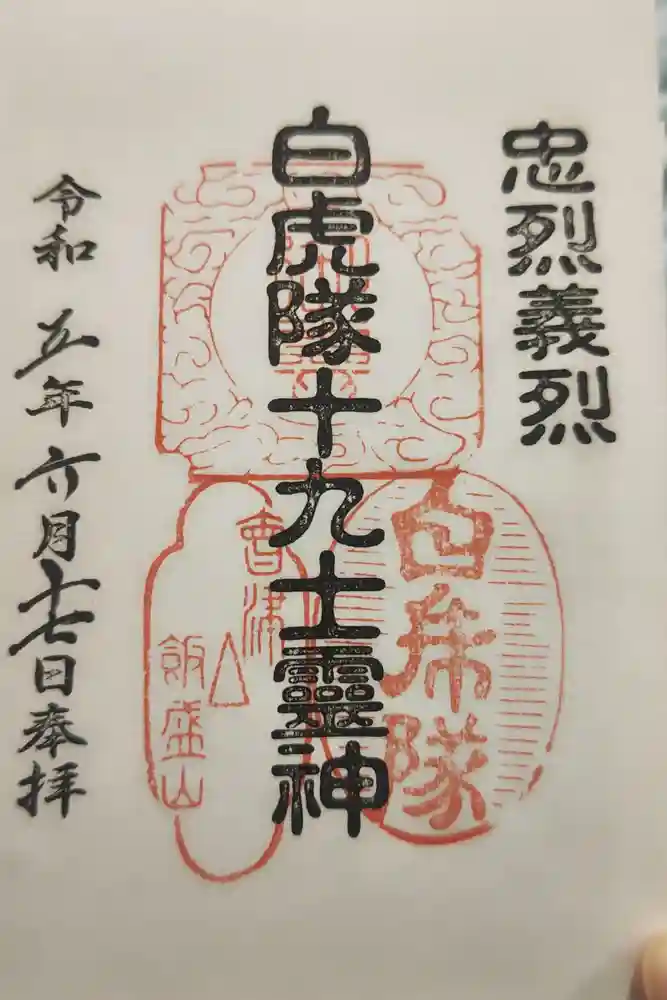 忠烈義烈
白虎隊十九士靈神
令和五年六月十七日奉拝
白虎隊
會津
飯盛山